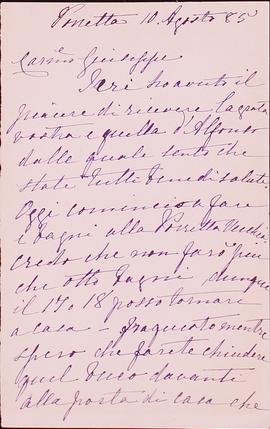 Porretta 10. Agosto 85
Carmo Giuseppe
Ieri ho avuto il
piacere di ricevere la grata
vostra e quella d'Alfonso
dalle quale sento che
state tutti bene di salute.
Oggi comincio a fare
i bagni alla Porretta Vecchia
credo che non farò più
che otto bagni, dunque
il 17 o 18 posso tornare
a casa - fra
spero che farete chiudere
quel buco davanti
alla porta di casa che